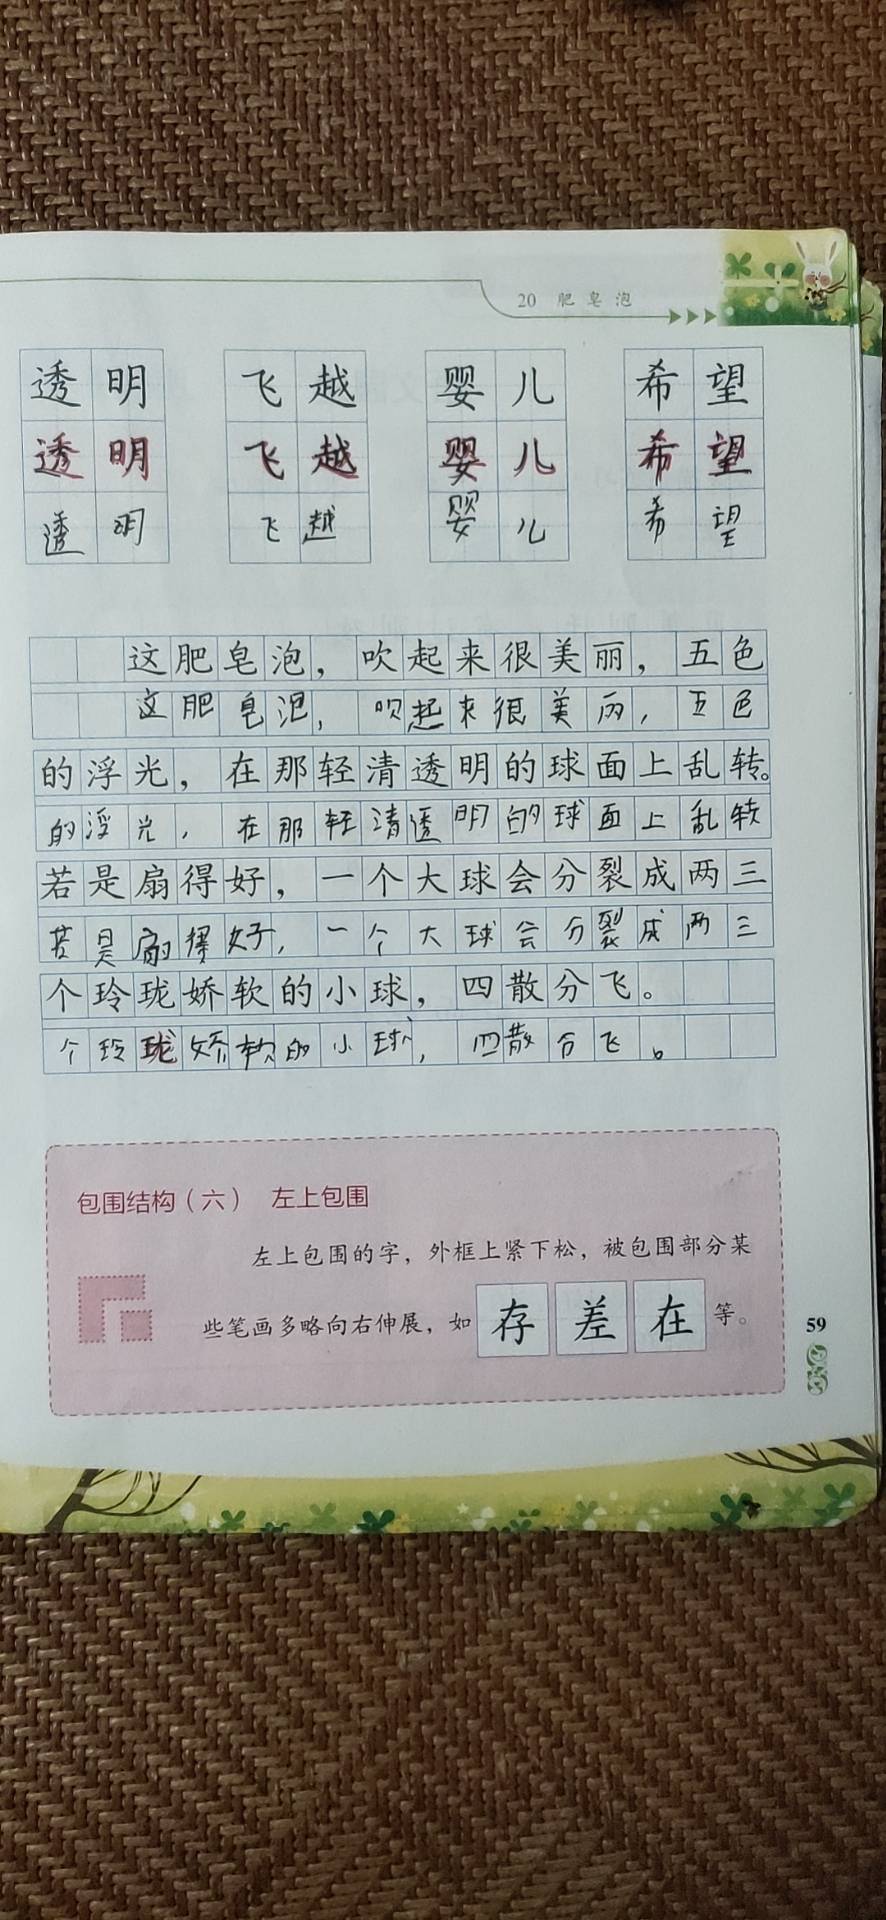 20 肥皂泡
透明 飞越 婴儿 希望
透明 飞越 婴儿 希望
透明 飞越 婴儿 希望
这肥皂泡，吹起来很美丽，五色
这肥皂泡，吹起来很美丽，五色
的浮光，在那轻清透明的球面上乱转。
的浮光，在那轻清透明的球面上乱转
若是扇得好，一个大球会分裂成两三
若是扇得好，一个大球会分裂成两三
个玲珑娇软的小球，四散分飞。
个玲珑娇软的小球，四散分飞。
包围结构（六） 左上包围
左上包围的字，外框上紧下松，被包围部分某
些笔画多略向右伸展，如 存 差 在 等。
59